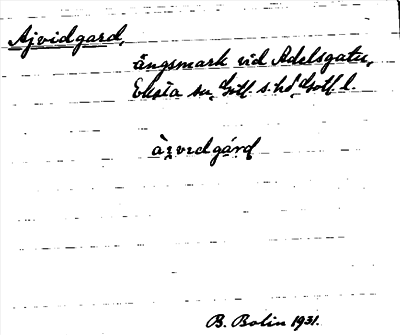 Ajvidgard,
ängsmark vid Adelsgatu,
Eksta sn, Gotl. s. hd, Gotl. l.
àivıdgárd
B. Bolin 1931.